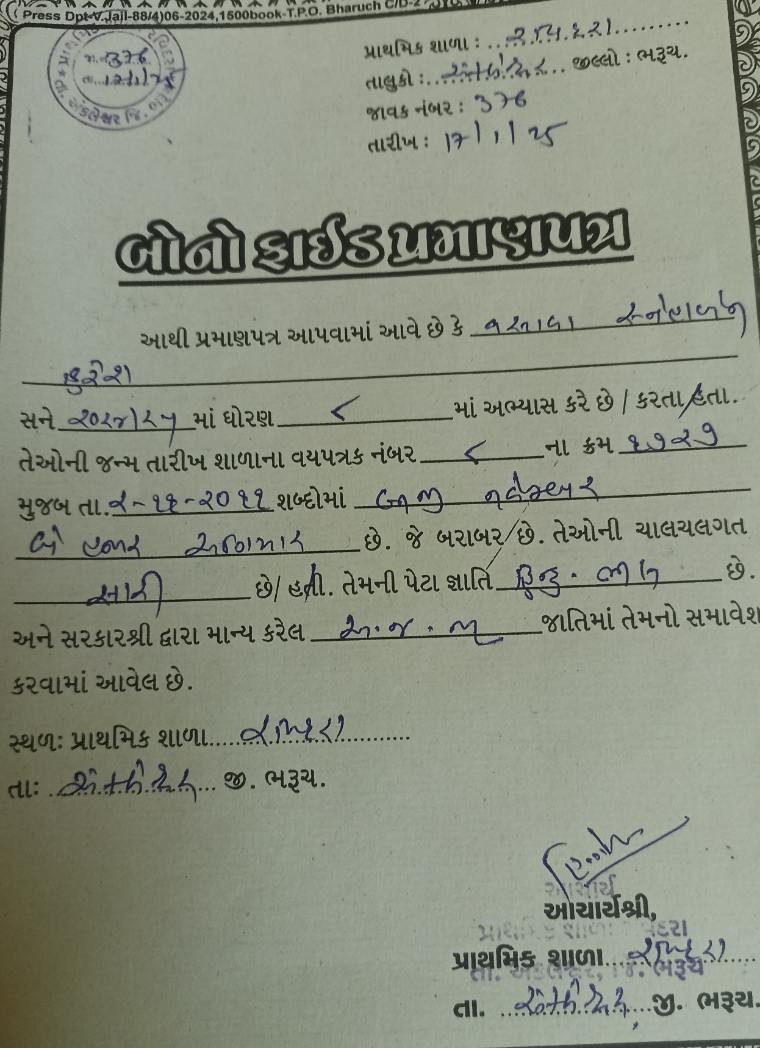 Press Dpt-V.Jail-88/4)06-2024,1500book-T.P.O. Bharuch C/D-2
પ્રાથમિક શાળા :
નં. 376
તા. 17/1/25
તાલુકો : અંકલેશ્વર જીલ્લો : ભરૂચ.
જાવક નંબર : 376
તારીખ : 17/1/25
બોનો ફાઈડ પ્રમાણપત્ર
આથી પ્રમાણપત્ર આપવામાં આવે છે કે વસાવા સ્નેહાબેન
સને ૨૦૨૪/૨૫ માં ધોરણ ૮ માં અભ્યાસ કરે છે / કરતા હતા.
તેઓની જન્મ તારીખ શાળાના વયપત્રક નંબર ૮ ના ક્રમ ૧૭૨૭
મુજબ તા. ૨-૧૧-૨૦૧૧ શબ્દોમાં બીજી નવેમ્બર
બે હજાર અગિયાર છે. જે બરાબર છે. તેઓની ચાલચલગત
સારી છે/ હતી. તેમની પેટા જ્ઞાતિ હિન્દુ. ભીલ છે.
અને સરકારશ્રી દ્વારા માન્ય કરેલ અ.જ.જા જાતિમાં તેમનો સમાવેશ
કરવામાં આવેલ છે.
સ્થળઃ પ્રાથમિક શાળા
તાઃ અંકલેશ્વર જી. ભરૂચ.
આચાર્ય
આચાર્યશ્રી,
પ્રાથમિક શાળા
તા. અંકલેશ્વર, જિ. ભરૂચ
તા. અંકલેશ્વર જી. ભરૂચ.